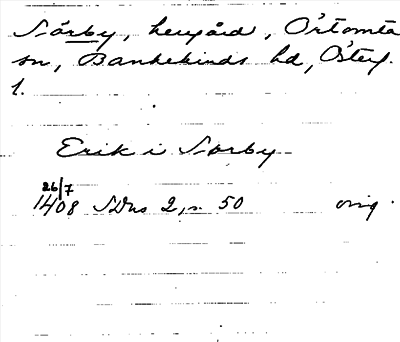 Sörby, herrgård, Örtomta
sn, Bankekinds hd, Österg.
l.
Erik i Sörby
26/7
1408 SDns 2, s. 50 orig.